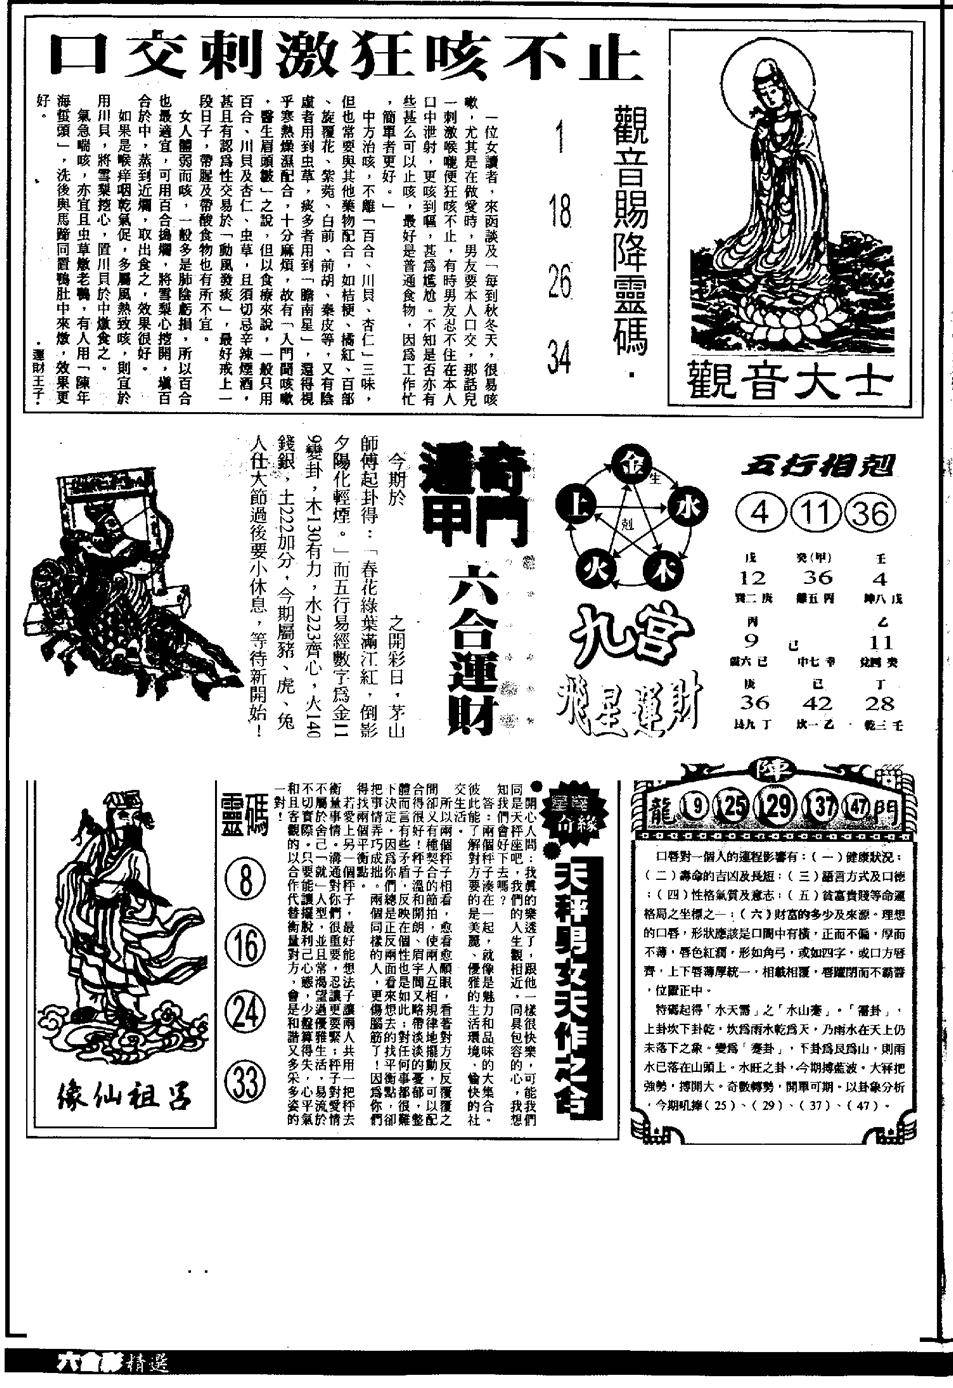 口交刺激狂咳不止
觀音賜降靈碼．
1
18
26
34
觀音大士
一位女讀者，來函談及「每到秋冬天，很易咳
嗽，尤其是在做愛時，男友要本人口交，那話兒
一刺激喉嚨便狂咳不止，有時男友忍不住在本人
口中泄射，更咳到嘔，甚爲尷尬。不知是否亦有
些甚么可以止咳，最好是普通食物，因爲工作忙
，簡單者更好。」
中方治咳，不離「百合、川貝、杏仁」三味，
但也常要與其他藥物配合，如桔梗、橘紅、百部
、旋覆花、紫菀、白前、前胡、秦皮等，又有陰
虛者用到虫草，痰多者用到「膽南星」，還得視
乎寒熱燥濕配合，十分麻煩，故有「入門聞咳嗽
，醫生眉頭皺」之說，但以食療來說，一般只用
百合、川貝及杏仁、虫草，且須切忌辛辣煙酒，
甚且有認爲性交易於「動風發痰」，最好戒上一
段日子，帶腥及帶酸食物也有所不宜。
女人體弱而咳，一般多是肺陰虧損，所以百合
也最適宜，可用百合搗爛，將雪梨心挖開，塡百
合於中，蒸到近爛，取出食之，效果很好。
如果是喉痒咽乾氣促，多屬風熱致咳，則宜於
用川貝，將雪梨挖心，置川貝於中燉食之。
氣急喘咳，亦宜且虫草燉老鴨，有人用「陳年
海蜇頭」，洗後與馬蹄同置鴨肚中來燉，效果更
好。
．運財王子．
五行相剋
4 11 36
金
水
木
火
土
生
剋
九宮
飛星運財
戊 癸(甲) 壬
12 36 4
巽二庚 離五丙 坤八戊
丙 乙
9 己 11
震六己 中七辛 兌四癸
庚 己 丁
36 42 28
艮九丁 坎一乙 乾三壬
奇門
遁甲
六合運財
今期於 之開彩日，茅山
師傅起卦得：「春花綠葉滿江紅，倒影
夕陽化輕煙。」而五行易經數字爲金11
9變卦，木130有力，水223齊心，火140
錢銀，土222加分，今期屬豬、虎、兔
人仕大節過後要小休息，等待新開始！
陣
龍 9 25 29 37 47 門
口唇對一個人的運程影響有：（一）健康狀況；
（二）壽命的吉凶及長短；（三）語言方式及口德
；（四）性格氣質及意志；（五）貧富貴賤等命運
格局之坐標之一；（六）財富的多少及來源。理想
的口唇，形狀應該是口闊中有橫，正而不偏，厚而
不薄，唇色紅潤，形如角弓，或如四字，或口方唇
齊，上下唇薄厚統一，相載相覆，唇躍閉而不霸齶
，位置正中。
特碼起得「水天需」之「水山蹇」。「需卦」，
上卦坎下卦乾，坎爲雨水乾爲天，乃雨水在天上仍
未落下之象。變爲「蹇卦」，下卦爲艮爲山，則雨
水已落在山頭上。水旺之卦，今期搏藍波。大冧把
強勢，搏開大。奇數轉勢，開單可期。以卦象分析
，今期吼捧（25）、（29）、（37）、（47）。
星座奇緣
天秤男女天作之合
●開心人問：我眞的樂透了，跟他一樣很快樂，可能我們
同是天秤座吧，我們的人生觀相近，同具包容的心，我想
知我們會好下去嗎？
答：兩個秤子湊在一起，就像是魅力和品味的大集合。
彼此能了解對方要的是美麗、優雅的生活環境，愉快的社
交生活。
所以兩個秤子相看，愈看愈順眼，看著對方反反覆覆之
間卻又有種契合的節拍，使兩人互相規律地擺動，可以配
合得很好！秤子溫和開朗、眉宇間又略帶淡淡的憂郁，整
體而言有些矛盾，反映在個性也是如此；對任何事都很難
下決定，因爲你們總是正反兩面看來想去的找平衡點，卻
把事情弄巧成拙。兩個同樣的人，更傷腦筋了！因爲你們
得找兩個平衡點。
若愛上另一個秤子，最好能想法子讓兩人共用一把秤去
衡量事情。溝通對你們很重要，忍讓更要緊；秤子對愛情
不屬於舍己「就」人型，並且常渴望過優雅生活，易流於
不切實際。只要能讓擺脫利己心態，少盤算得失，心平氣
和且客觀的以合作代替衡量對方，會是和諧又多采多姿的
一對！
靈碼
8
16
24
33
呂祖仙像
六合彩精選